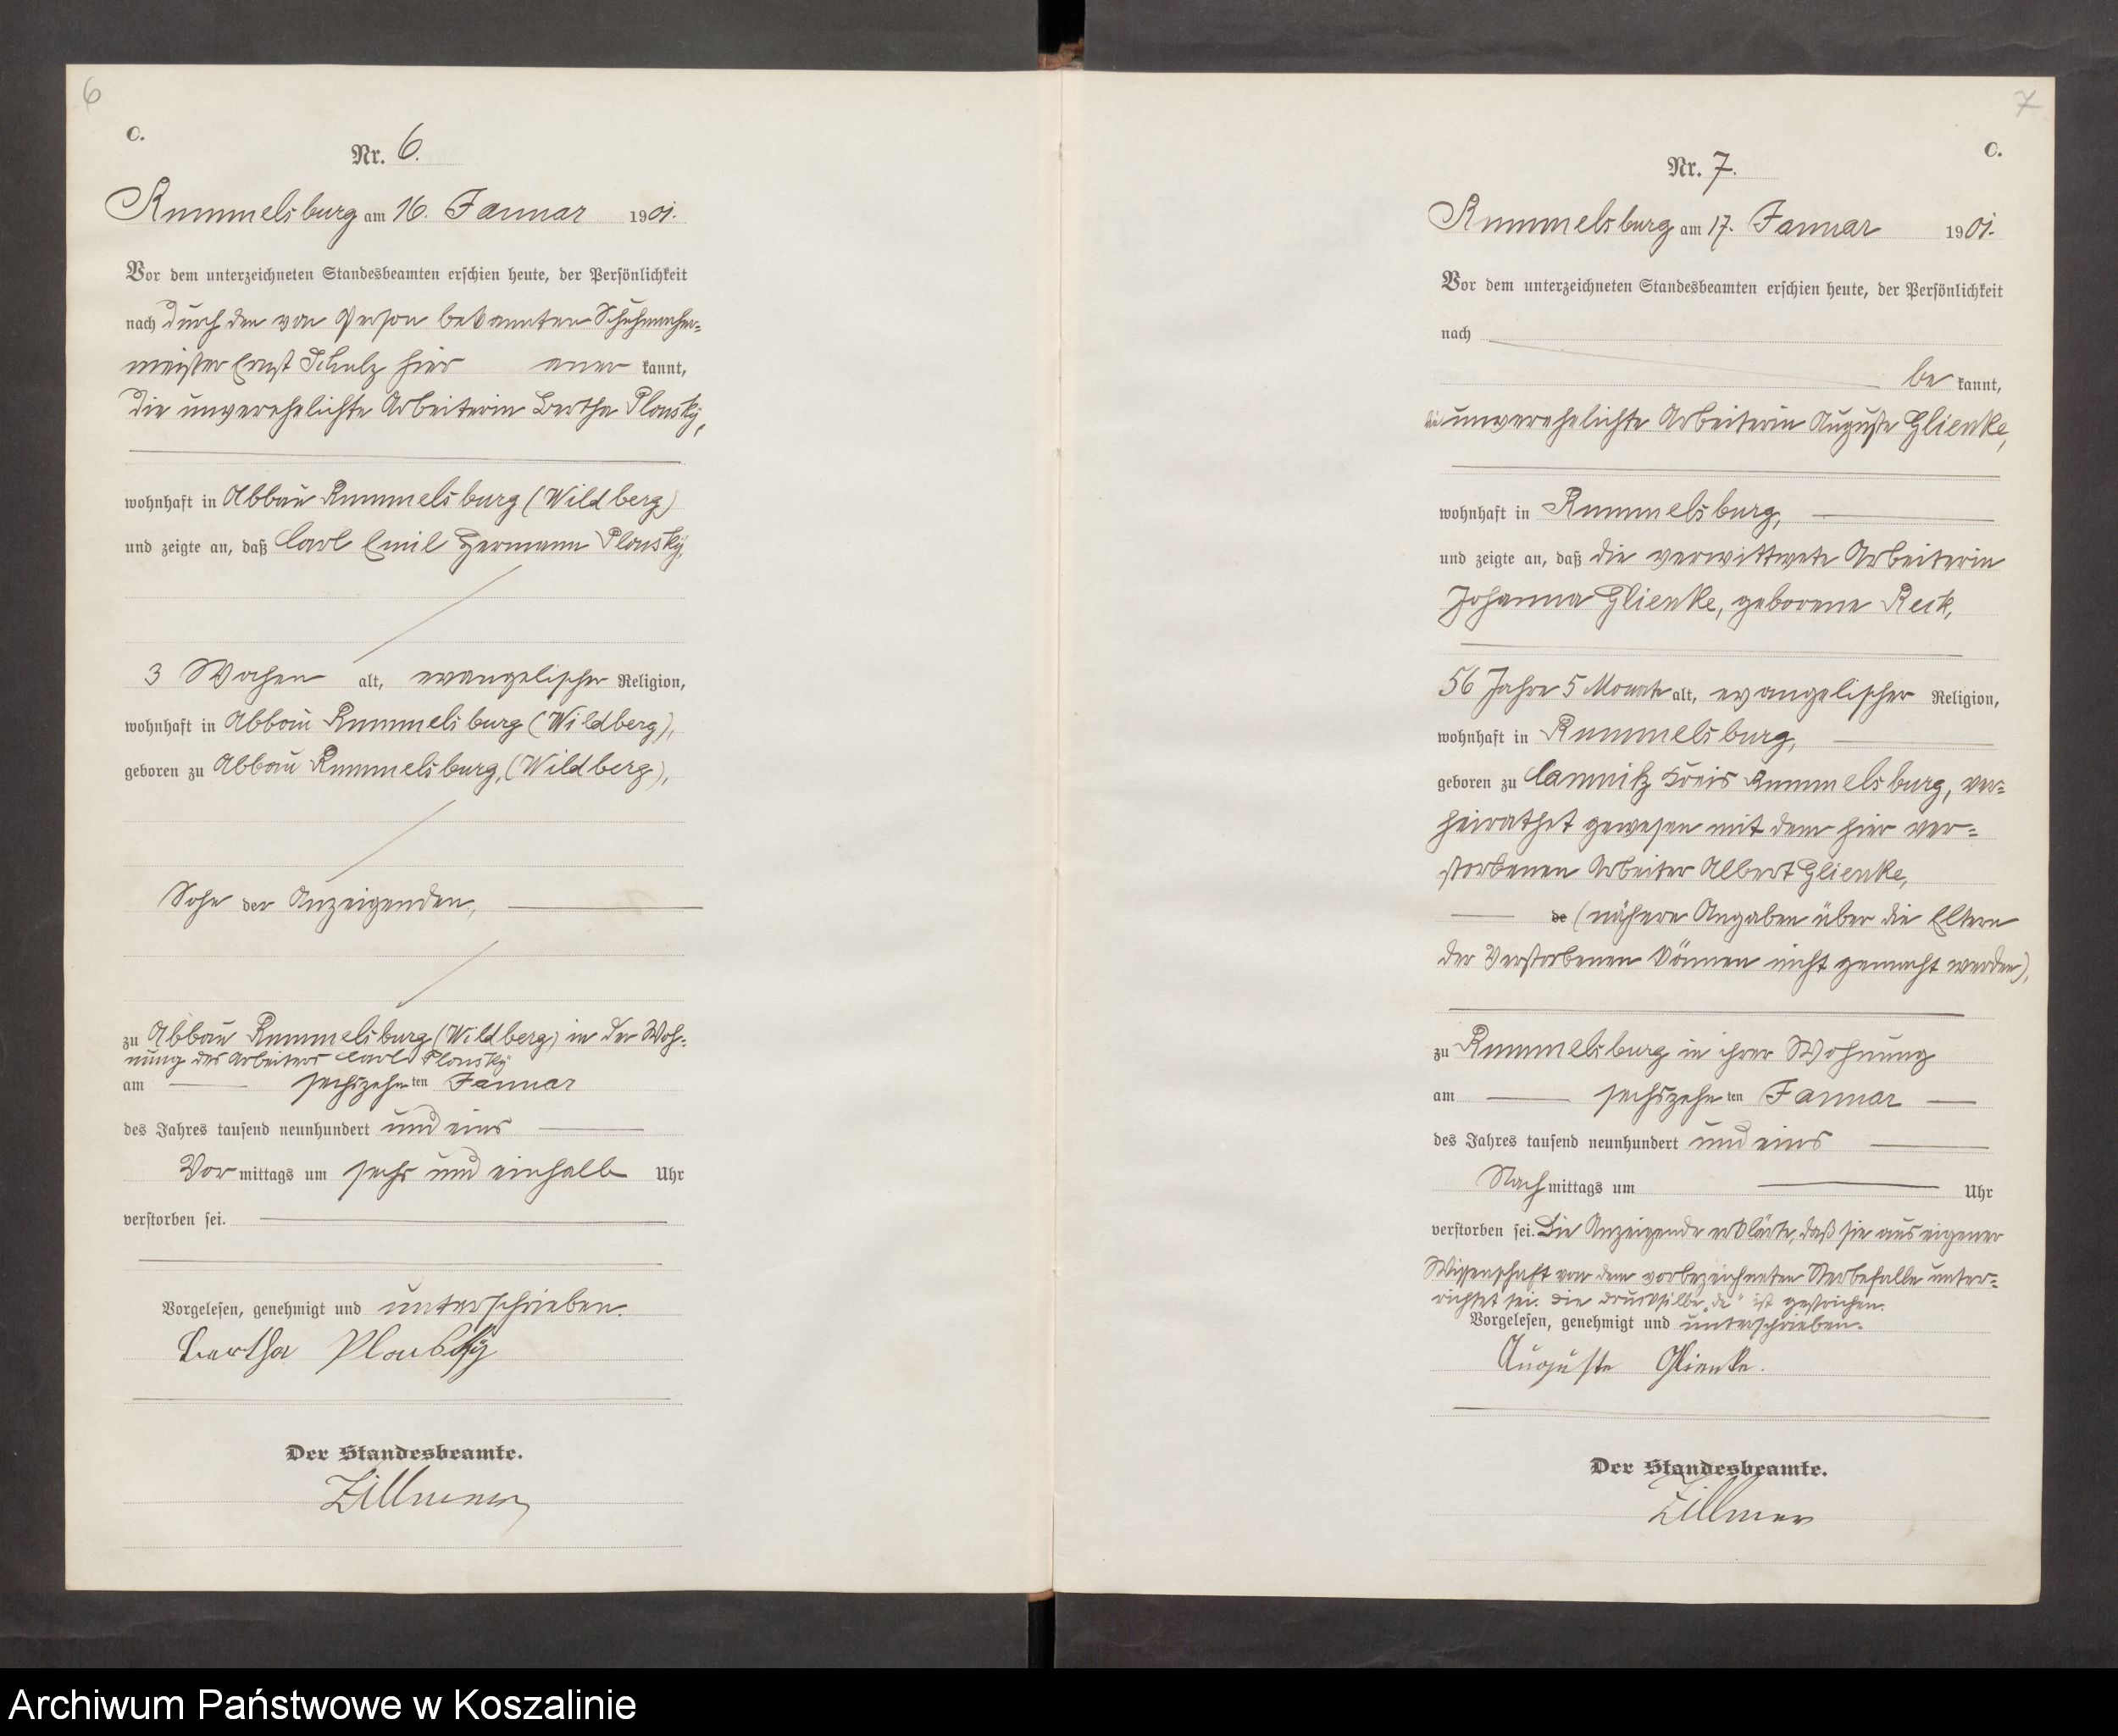 6
C.
Nr. 6.
Rummelsburg am 16. Januar 1901.
Vor dem unterzeichneten Standesbeamten erschien heute, der Persönlichkeit
nach durch den von Person bekannten Schuhmacher=
meister Ernst Schulz hier aner kannt,
die unverehelichte Arbeiterin Bertha Plonsky,
wohnhaft in Abbau Rummelsburg (Wildberg)
und zeigte an, daß Carl Emil Hermann Plonsky,
3 Wochen alt, evangelischer Religion,
wohnhaft in Abbau Rummelsburg (Wildberg),
geboren zu Abbau Rummelsburg, (Wildberg),
Sohn der Anzeigenden,
zu Abbau Rummelsburg (Wildberg) in der Woh=
nung des Arbeiters Carl Plonsky
am sechszehn ten Januar
des Jahres tausend neunhundert und eins
Vor mittags um sechs und einhalb Uhr
verstorben sei.
Vorgelesen, genehmigt und unterschrieben.
Bertha Plonsky
Der Standesbeamte.
Zillmer
7
C.
Nr. 7.
Rummelsburg am 17. Januar 1901.
Vor dem unterzeichneten Standesbeamten erschien heute, der Persönlichkeit
nach
be kannt,
die unverehelichte Arbeiterin Auguste Glienke,
wohnhaft in Rummelsburg,
und zeigte an, daß die verwittwete Arbeiterin
Johanna Glienke, geborene Reck,
56 Jahre 5 Monate alt, evangelischer Religion,
wohnhaft in Rummelsburg,
geboren zu Camnitz Kreis Rummelsburg, ver=
heirathet gewesen mit dem hier ver=
storbenen Arbeiter Albert Glienke,
de (nähere Angaben über die Eltern
der Verstorbenen können nicht gemacht werden),
zu Rummelsburg in ihrer Wohnung
am sechszehn ten Januar
des Jahres tausend neunhundert und eins
Nach mittags um Uhr
verstorben sei. Die Anzeigende erklärte, daß sie aus eigener
Wissenschaft von dem vorbezeichneten Sterbefalle unter=
richtet sei. Die Drucksilbe „de" ist gestrichen.
Vorgelesen, genehmigt und unterschrieben.
Auguste Glienke.
Der Standesbeamte.
Zillmer
Archiwum Państwowe w Koszalinie